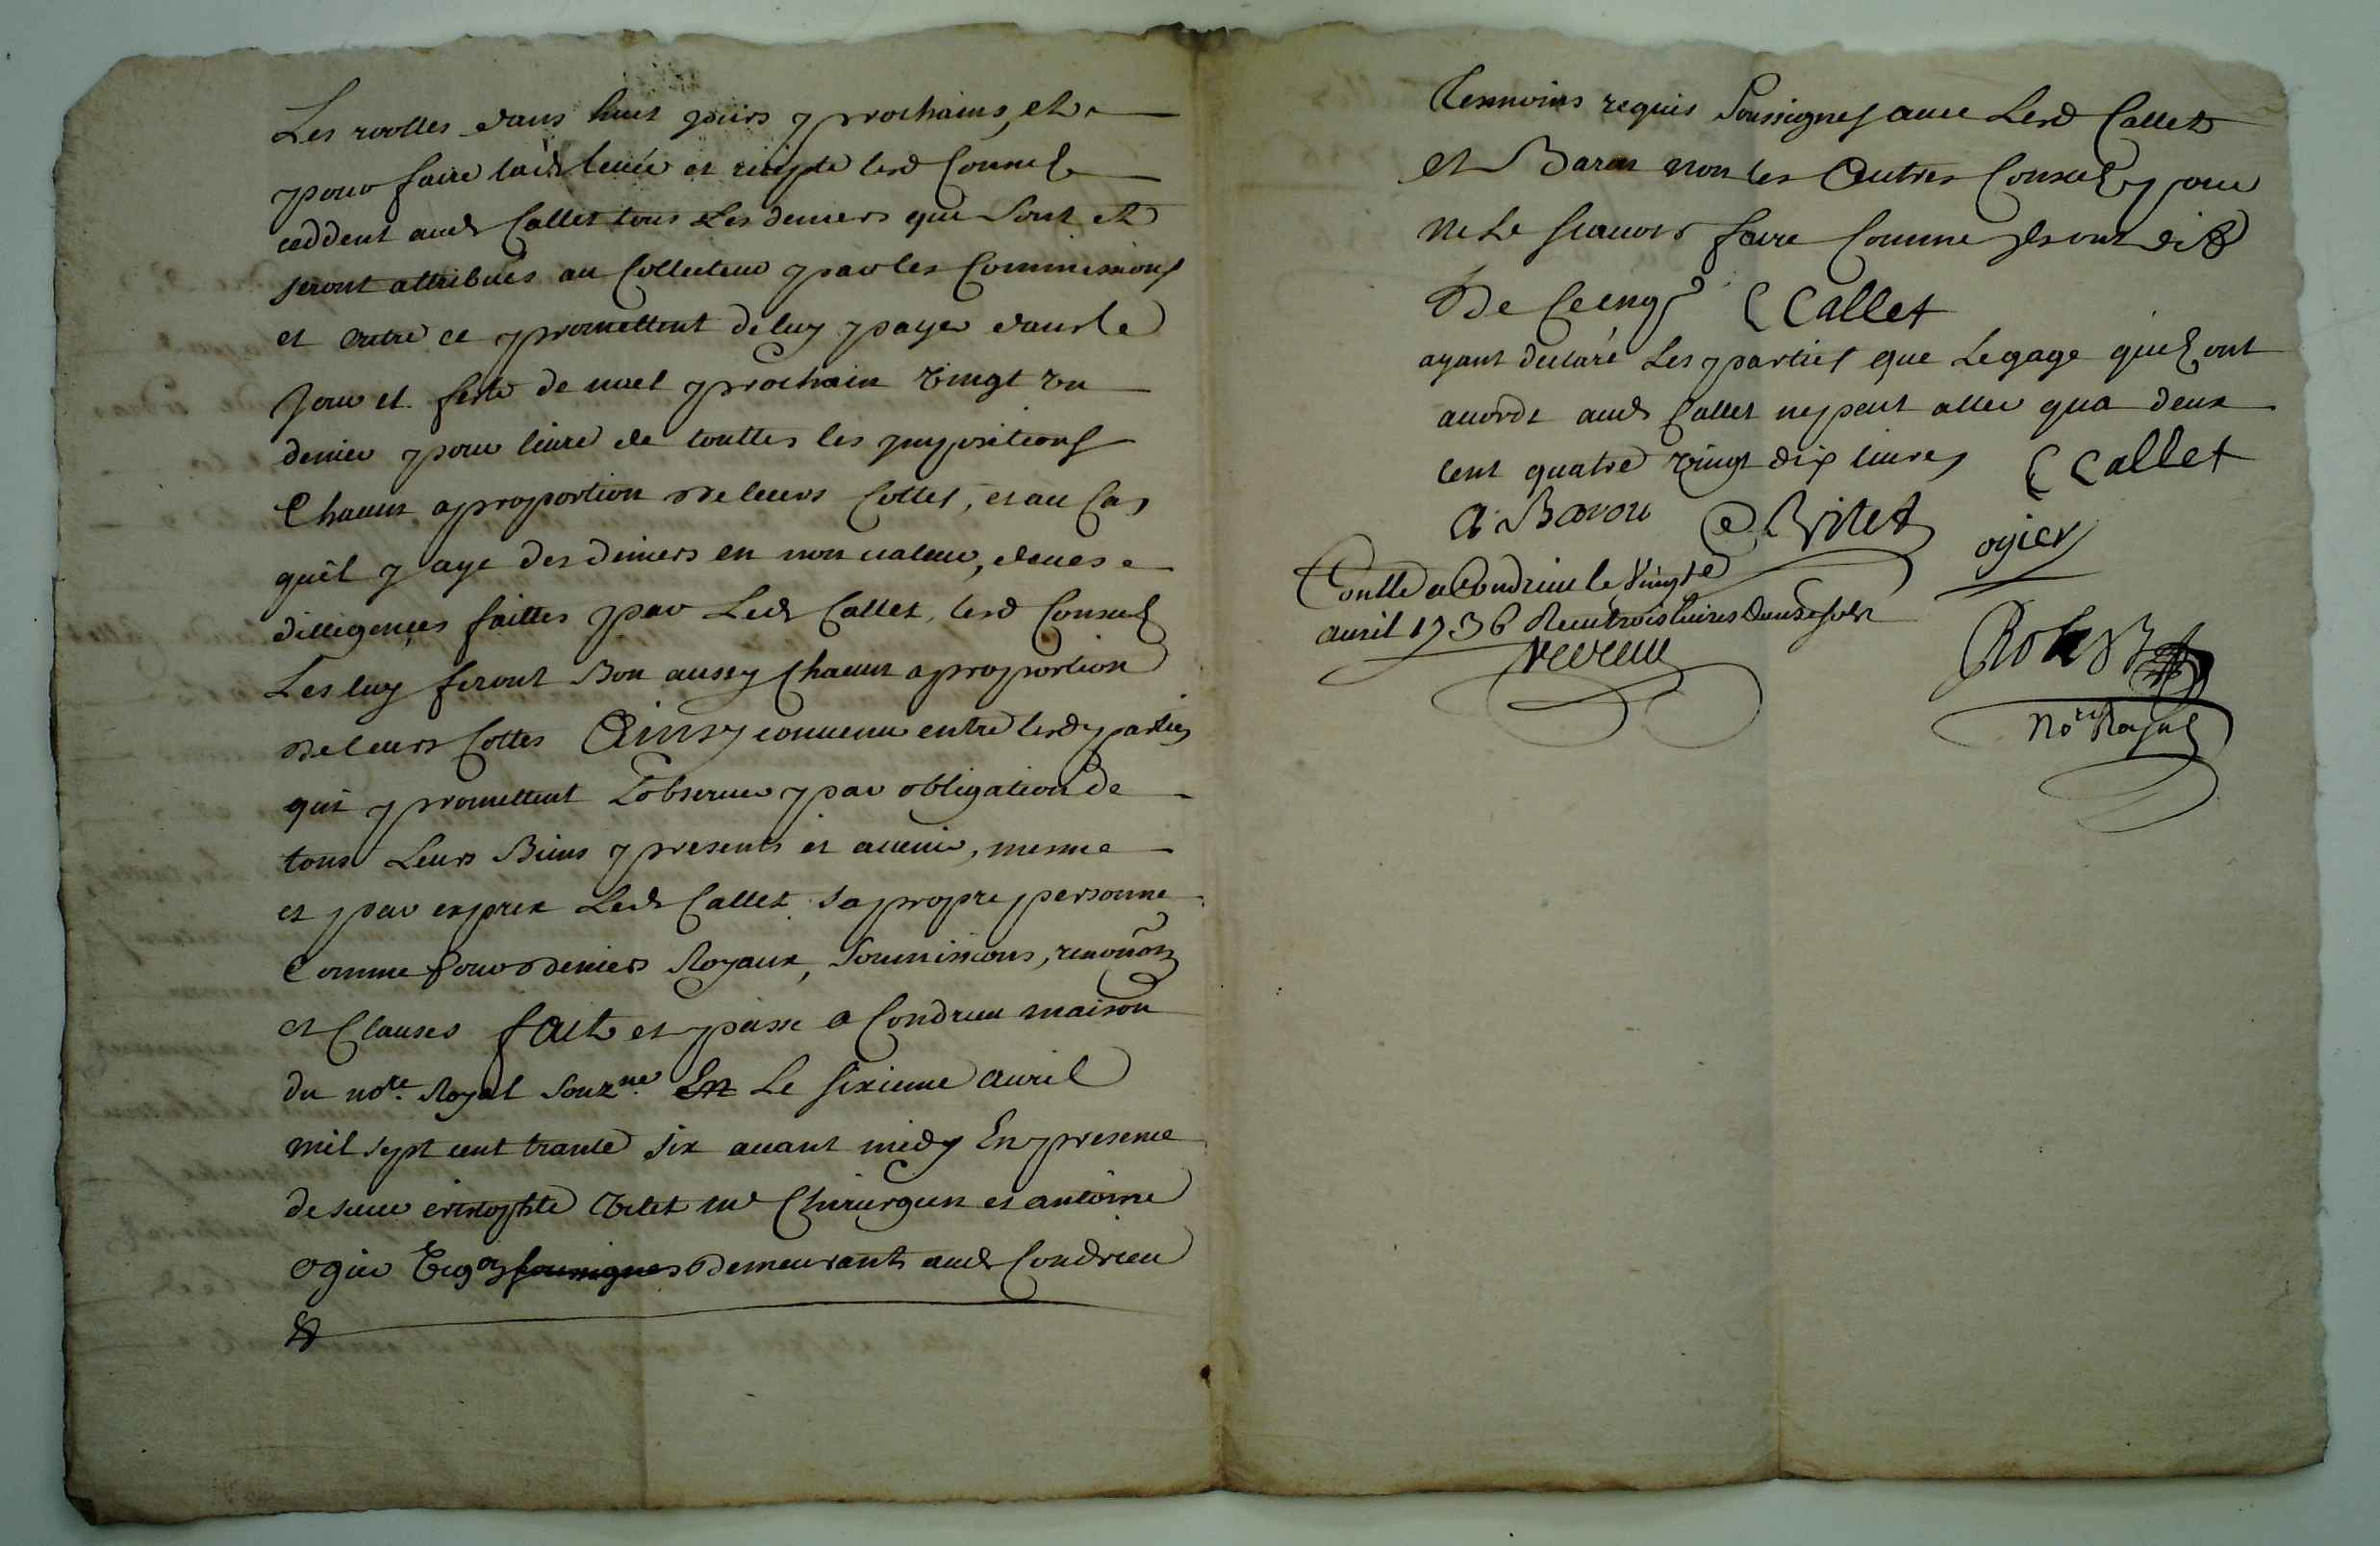 Les roolles dans huit jours prochains, et
pour faire lad levée et recepte lesd Consuls
ceddent aud Callet tous Les deniers qui sont et
seront attribués au Collecteur par les Commissions
et outre ce promettent de luy payer dans le
Jour et feste de noel prochain vingt un
denier pour livre de touttes les impositions
Chacun a proportion de leurs Cottes, et au Cas
quil y aye des deniers en non valeur, deues
dilligences faittes par Led Callet, lesd Consuls
Les luy feront Bon aussy Chacun a proportion
de leurs Cottes Ainsy convenu entre lesd parties
qui promettent L'observer par obligation de
tous Leurs Biens presents et avenir, mesme
et par exprex Led Callet sa propre personne
Comme pour deniers Royaux, Soumissions, renonõns
et Clauses fait et passé a Condrieu maison
du nore. Royal souz.né Le sixieme avril
mil sept cent trante six avant midy En presence
de sieur Vitet me Chirurgien et antoine
ogier soussignes demeurants aud Condrieu
Tesmoins requis Soussignes avec Lesd Callet
et Baron non les Autres Consuls pour
ne Le scavoir faire Comme ils ont dit
De Ce enq C Callet
ayant declaré Les parties que Le gage quils ont
acordé aud Callet ne peut aller qua deux
cent quatre vingt dix livres C Callet
A Baron C Vitet ogier
Conllé a Condrieu le Vingt
avril 1736 Receu trois livres Douze sols
nore Royal